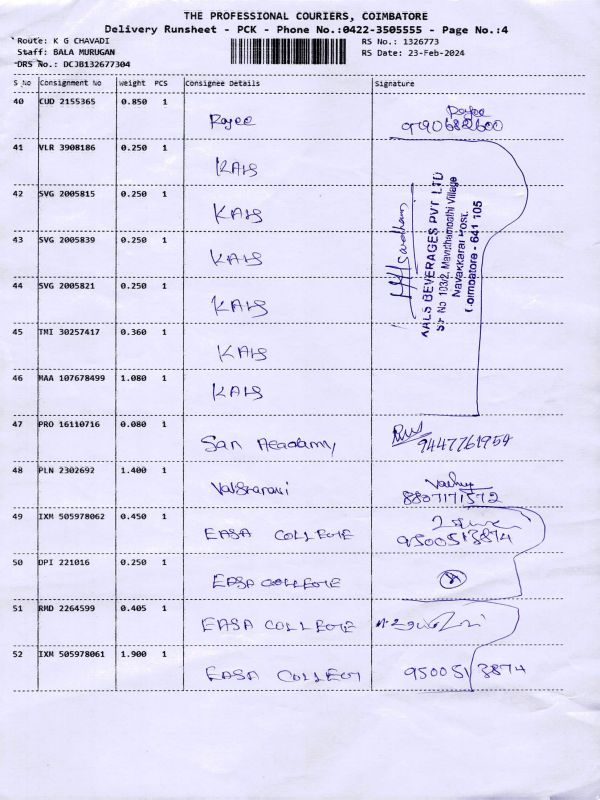 THE PROFESSIONAL COURIERS, COIMBATORE
Delivery Runsheet - PCK - Phone No.:0422-3505555 - Page No.:4
Route: K G CHAVADI
Staff: BALA MURUGAN
DRS No.: DCJB132677304
RS No.: 1326773
RS Date: 23-Feb-2024
S No Consignment No Weight PCS Consignee Details Signature
40 CUD 2155365 0.850 1
9790682600
41 VLR 3908186 0.250 1 KALS
42 SVG 2005815 0.250 1 KALS
43 SVG 2005839 0.250 1 KALS
44 SVG 2005821 0.250 1 KALS
45 TMI 30257417 0.360 1 KALS
46 MAA 107678499 1.080 1 KALS
KALS BEVERAGES PVT LTD
SF No 103/2, Mavuthampathi Village
Navakkarai Post,
Coimbatore - 641 105
47 PRO 16110716 0.080 1 San Academy 9447761954
48 PLN 2302692 1.400 1 8807171572
49 IXM 505978062 0.450 1 EASA COLLEGE 9500513874
50 DPI 221016 0.250 1 EASA COLLEGE
51 RMD 2264599 0.405 1 EASA COLLEGE
52 IXM 505978061 1.900 1 EASA COLLEGE 9500513874